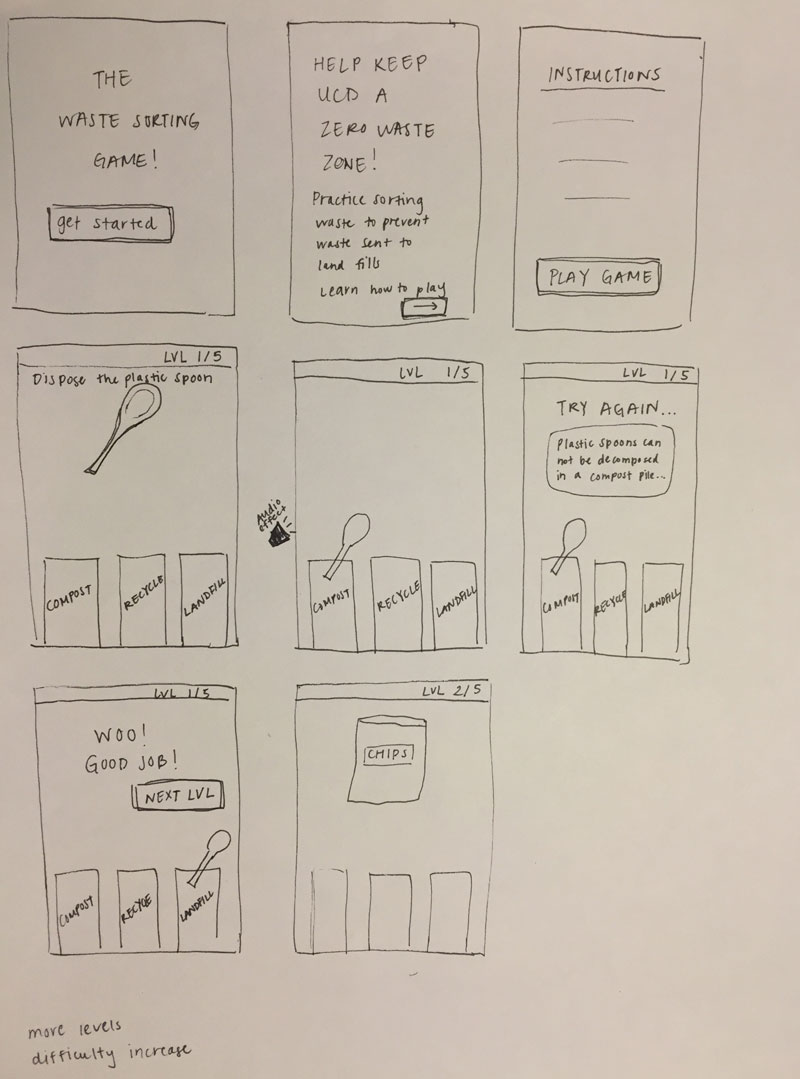 THE
WASTE SORTING
GAME!
get started
HELP KEEP
UCD A
ZERO WASTE
ZONE!
Practice sorting
waste to prevent
waste sent to
land fills
Learn how to play
INSTRUCTIONS
PLAY GAME
LVL 1/5
Dispose the plastic spoon
COMPOST
RECYCLE
LANDFILL
LVL 1/5
Audio
effect
COMPOST
RECYCLE
LANDFILL
LVL 1/5
TRY AGAIN...
Plastic spoons can
not be decomposed
in a compost pile...
COMPOST
RECYCLE
LANDFILL
LVL 1/5
WOO!
GOOD JOB!
NEXT LVL
COMPOST
RECYCE
LANDFILL
LVL 2/5
CHIPS
more levels
difficulty increase